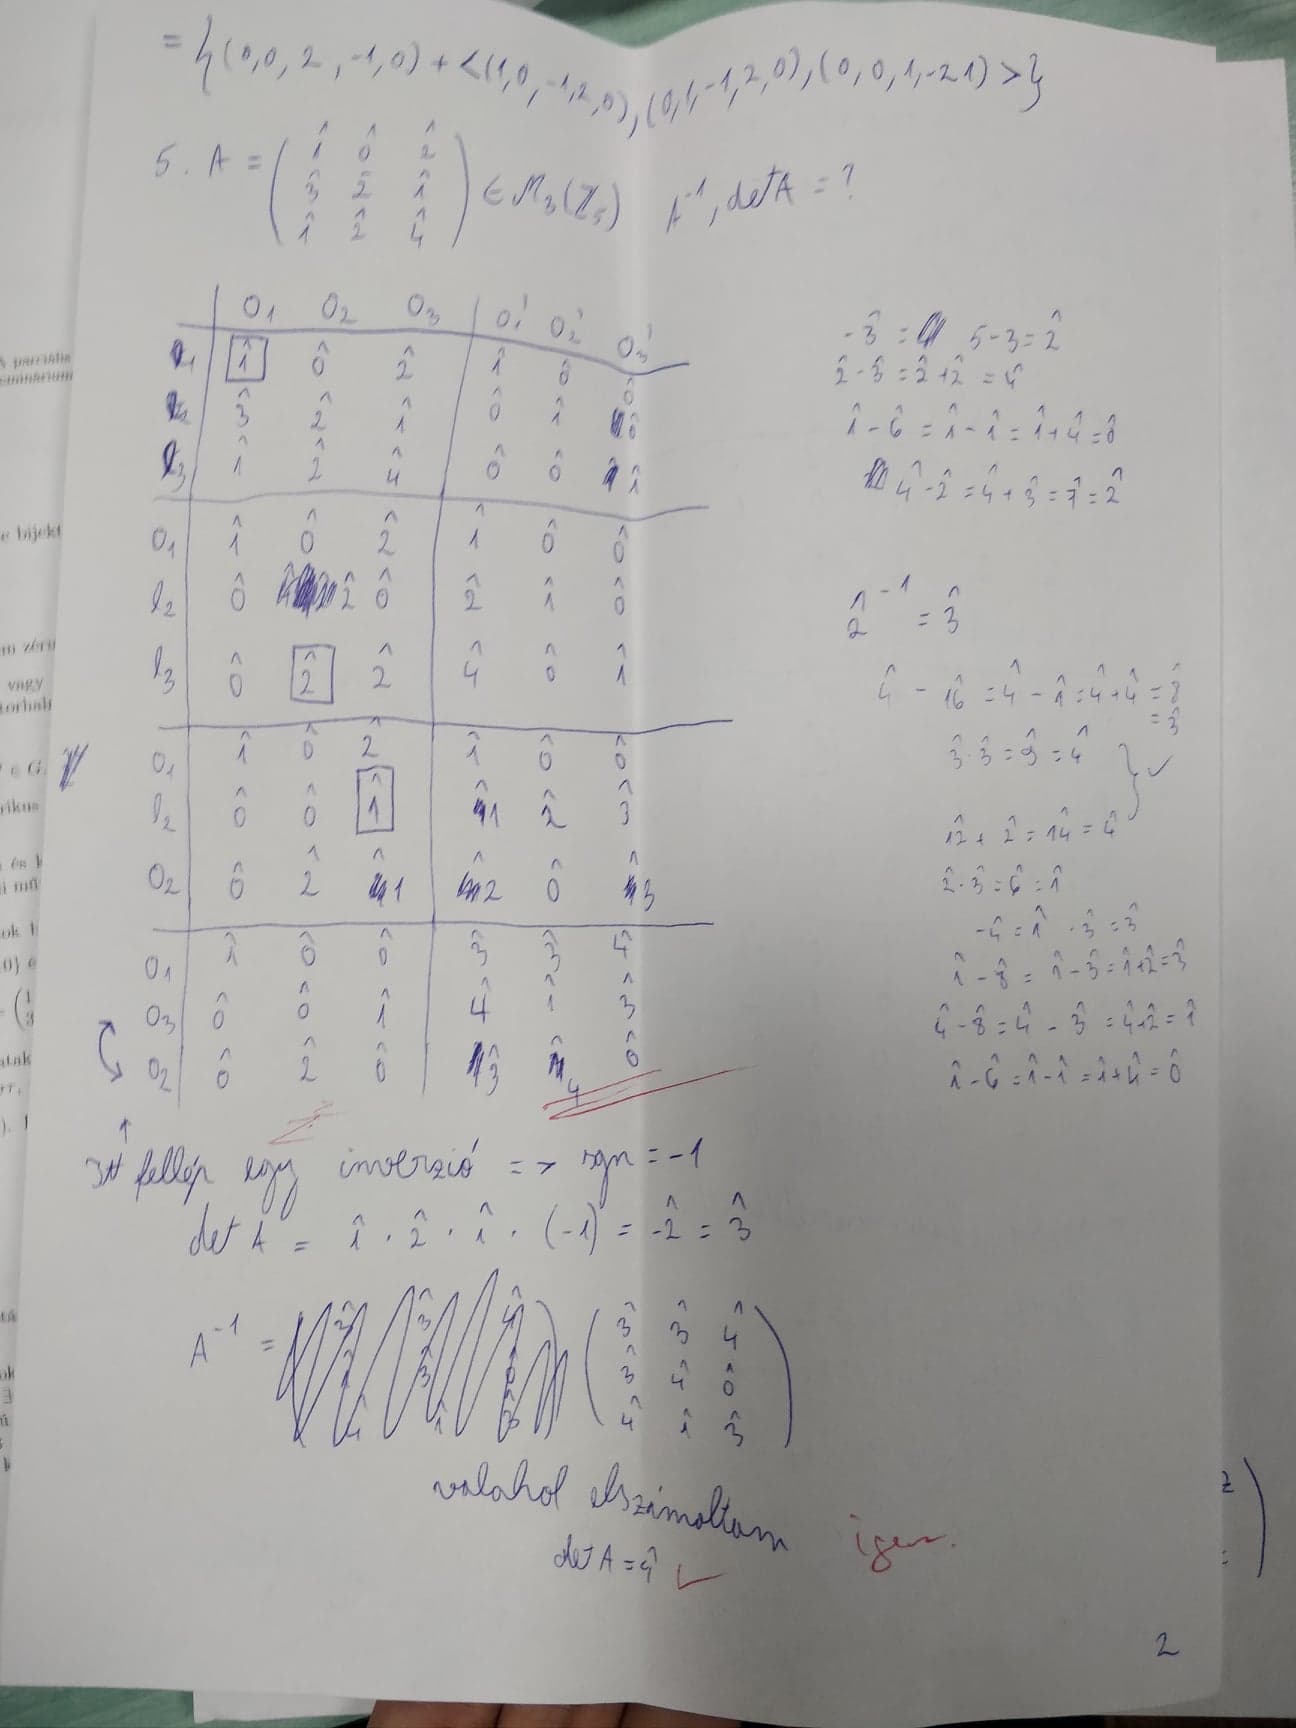 = {(0,0,2,-1,0) + <(1,0,-1,2,0),(0,1,-1,2,0),(0,0,1,-2,1)>}
5. A = ( 1̂ 0̂ 2̂
3̂ 2̂ 1̂
1̂ 2̂ 4̂ ) ∈ M₃(ℤ₅) A⁻¹, det A = ?
O₁ O₂ O₃ | O₁' O₂' O₃'
l₁ 1̂ 0̂ 2̂ | 1̂ 0̂ 0̂
l₂ 3̂ 2̂ 1̂ | 0̂ 1̂ 0̂
l₃ 1̂ 2̂ 4̂ | 0̂ 0̂ 1̂
O₁ 1̂ 0̂ 2̂ | 1̂ 0̂ 0̂
l₂ 0̂ 2̂ 0̂ | 2̂ 1̂ 0̂
l₃ 0̂ 2̂ 2̂ | 4̂ 0̂ 1̂
O₁ 1̂ 0̂ 2̂ | 1̂ 0̂ 0̂
l₂ 0̂ 0̂ 1̂ | 1̂ 2̂ 3̂
O₂ 0̂ 2̂ 1̂ | 2̂ 0̂ 3̂
O₁ 1̂ 0̂ 0̂ | 3̂ 3̂ 4̂
O₃ 0̂ 0̂ 1̂ | 4̂ 1̂ 3̂
O₂ 0̂ 2̂ 0̂ | 3̂ 4̂ 0̂
-3̂ = 5-3 = 2̂
2̂ - 3̂ = 2̂ + 2̂ = 4̂
1̂ - 6̂ = 1̂ - 1̂ = 1̂ + 4̂ = 0̂
4̂ - 2̂ = 4̂ + 3̂ = 7̂ = 2̂
2̂⁻¹ = 3̂
4̂ - 16̂ = 4̂ - 1̂ = 4̂ + 4̂ = 8̂
= 3̂
3̂ · 3̂ = 9̂ = 4̂
} ✓
12̂ + 2̂ = 14̂ = 4̂
2̂ · 3̂ = 6̂ = 1̂
-4̂ = 1̂ · 3̂ = 3̂
1̂ - 8̂ = 1̂ - 3̂ = 1̂ + 2̂ = 3̂
4̂ - 8̂ = 4̂ - 3̂ = 4̂ + 2̂ = 1̂
1̂ - 6̂ = 1̂ - 1̂ = 1̂ + 4̂ = 0̂
↑
fellép egy inverzió => sgn = -1
det A = 1̂ · 2̂ · 1̂ · (-1) = -2̂ = 3̂
A⁻¹ = ( 3̂ 3̂ 4̂
3̂ 4̂ 0̂
4̂ 1̂ 3̂ )
valahol elszámoltam igen.
det A = 4̂ ✓
2